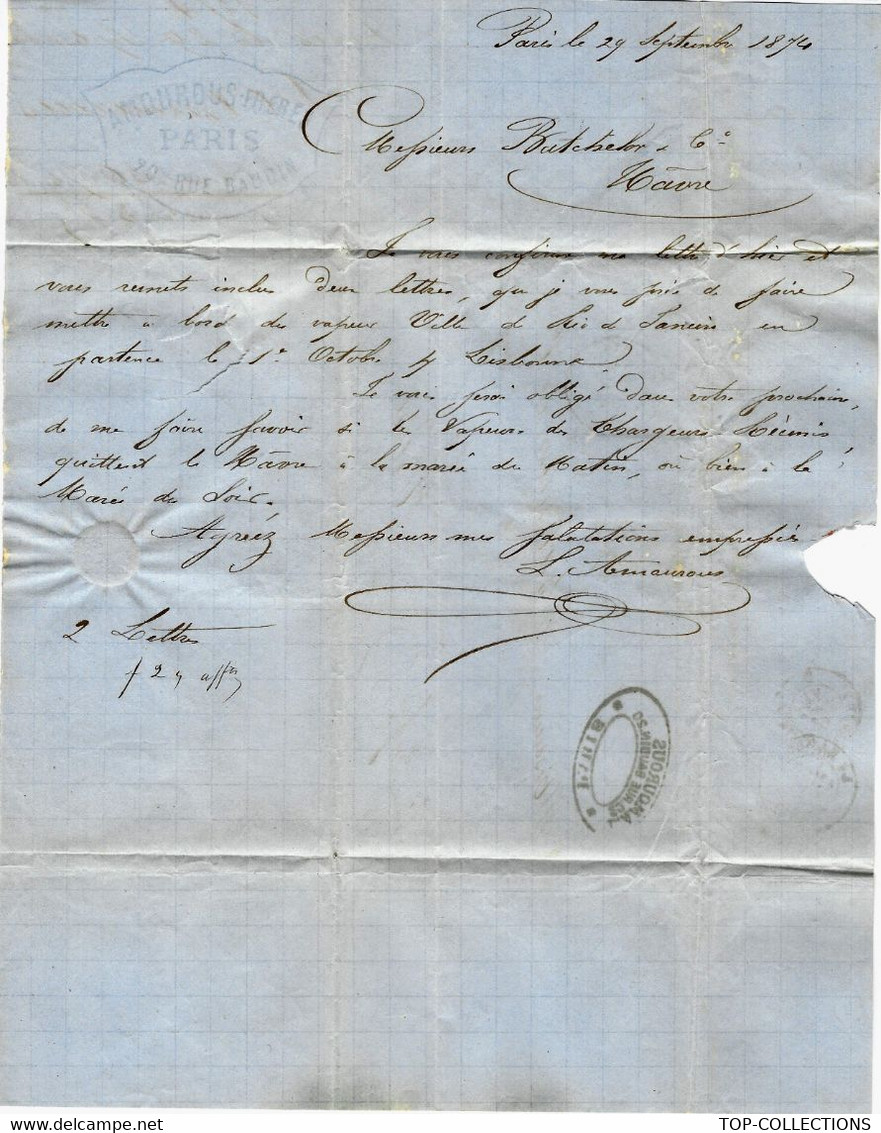 Paris le 29 Septembre 1874
AMOUROUS FRERE
PARIS
20 RUE BAUDIN
Messieurs Batchelor & Cº
Hâvre
Je vous confirme ma lettre d'hier et
vous remets inclus deux lettres, que je vous prie de faire
mettre à bord du vapeur Ville de Rio de Janeiro en
partence le 1er Octobre pr Lisbonne.
Je vous serai obligé dans votre prochaine,
de me faire savoir si les Vapeurs des Chargeurs Réunis,
quittent le Hâvre à la marée du Matin, ou bien à la
Marée du Soir.
Agréez Messieurs mes salutations empressées
L. Amourous
2 Lettres
PARIS
AMOUROUS
RUE BAUDIN 20
TOP-COLLECTIONS